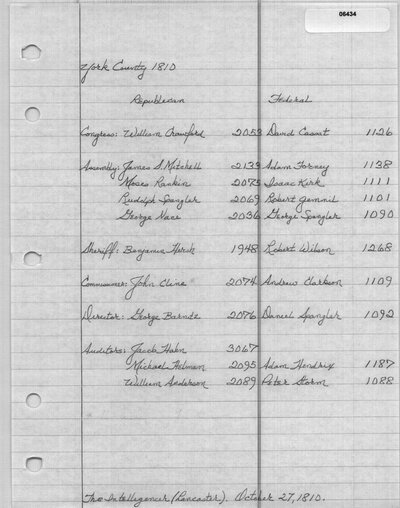 06434
York County 1810
Republican Federal
Congress: William Crawford 2053 David Cassat 1126
Assembly: James S. Mitchell 2133 Adam Forney 1138
Moses Rankin 2075 Isaac Kirk 1111
Rudolph Spangler 2069 Robert Gemmil 1101
George Nace 2036 George Spangler 1090
Sheriff: Benjamin Hersh 1948 Robert Wilson 1268
Commissioner: John Cline 2074 Andrew Clarkson 1109
Director: George Barnitz 2076 Daniel Spangler 1092
Auditors: Jacob Hahn 3067
Michael Helman 2095 Adam Hendrix 1187
William Anderson 2089 Peter Storm 1088
The Intelligencer (Lancaster). October 27, 1810.